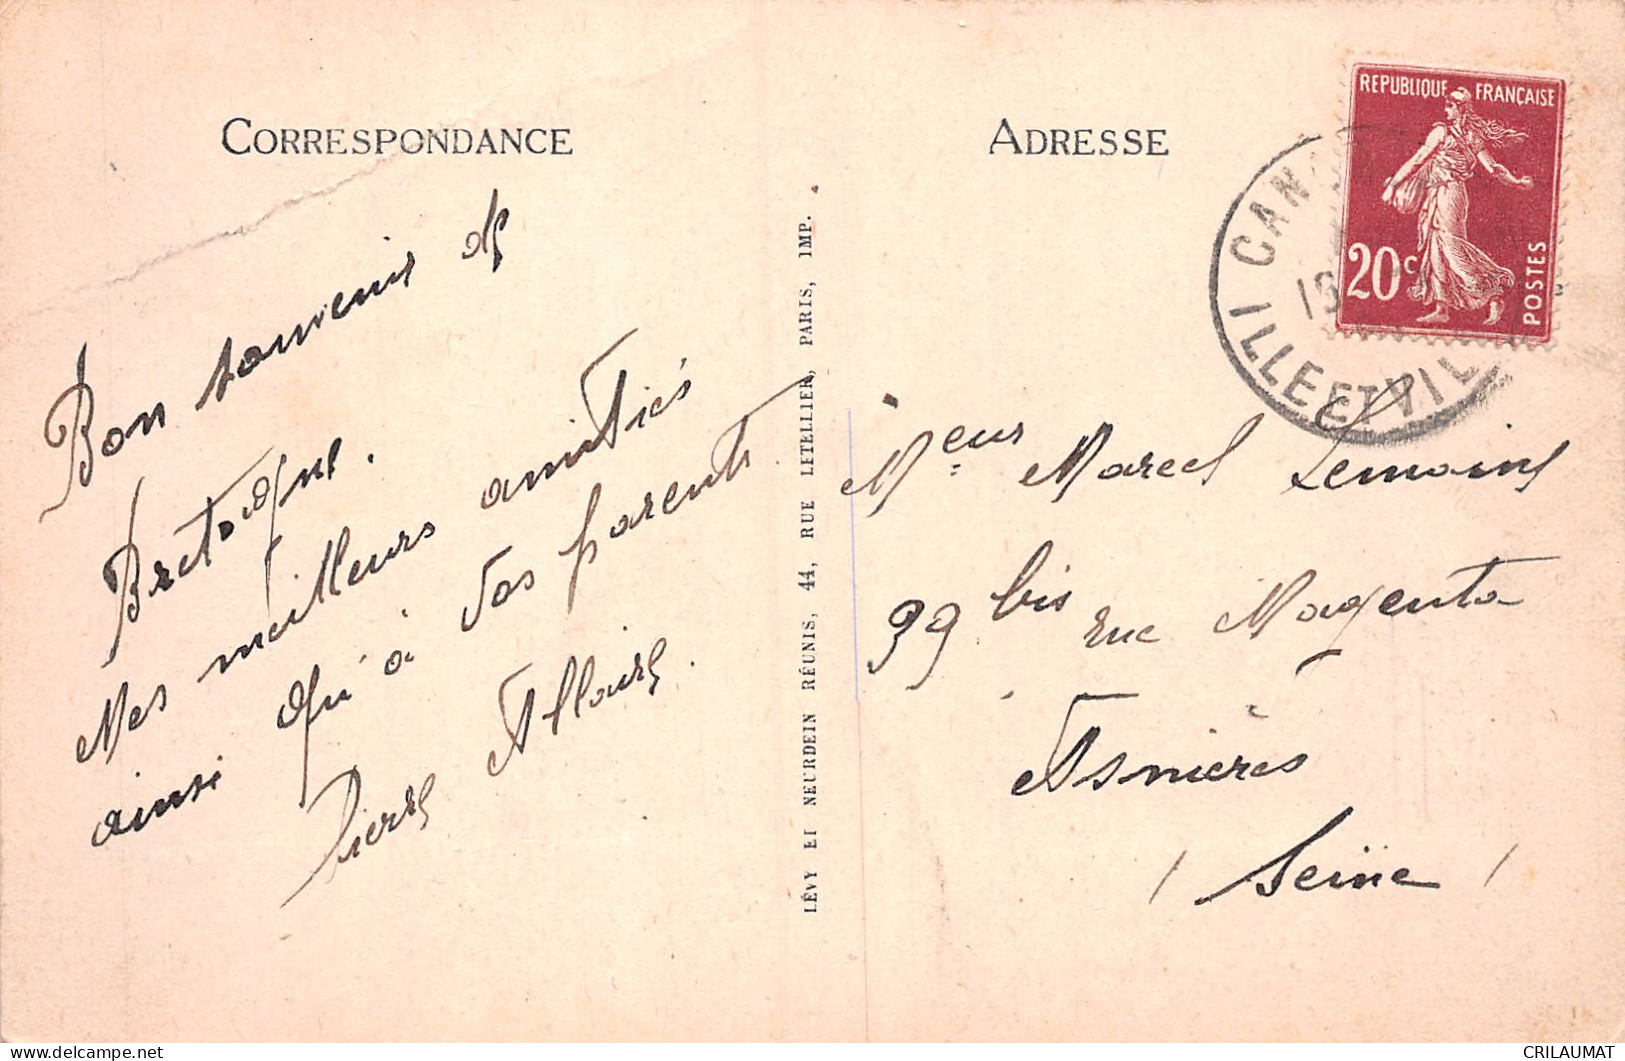 CORRESPONDANCE
Bon souvenir de
Bretagne.
Mes meilleurs amitiés
ainsi qu'à vos parents
Pierre Allaire.
LÉVY ET NEURDEIN RÉUNIS, 44, RUE LETELLIER, PARIS, IMP.
ADRESSE
REPUBLIQUE FRANÇAISE
20c
POSTES
CAN
ILLE ET VIL
Meur Marcel Lemoine
39 bis rue Magenta
Asnières
(Seine)
CRILAUMAT